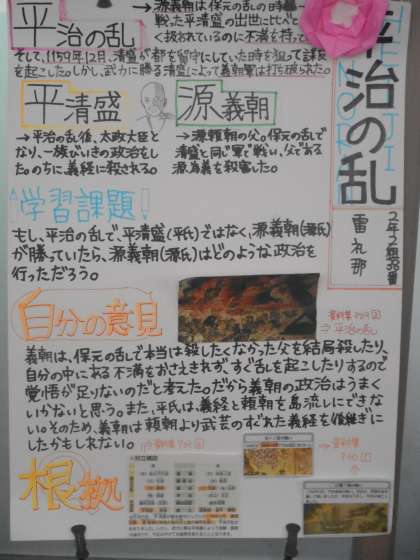 平治の乱
HEIJI NO RAN
2年2組38番
雷礼那
平治の乱
→源義朝は保元の乱の時
戦った平清盛の出世と比べと
く扱われているのに不満を持って
そして、1159年12月、清盛が都を留守にしていた時を狙って謀反
を起こした。しかし、武力に勝る清盛によって義朝軍は打ち破られた。
平清盛
→平治の乱後、太政大臣と
なり、一族びいきの政治をし
た。のちに、義経に殺される。
源義朝
→源頼朝の父。保元の乱で
清盛と同じ軍で戦い、父である
源為義を殺害した。
学習課題
もし、平治の乱で、平清盛(平氏)ではなく、源義朝(源氏)
が勝っていたら、源義朝(源氏)はどのような政治を
行っただろう。
自分の意見
資料集
⇒平治の乱
義朝は、保元の乱で本当は殺したくなかった父を結局殺したり、
自分の中にある不満をおさえきれず、すぐ乱を起こしたりするので
覚悟が足りないのだと考えた。だから義朝の政治はうまく
いかないと思う。また、平氏は、義経と頼朝を島流しにできな
い。そのため、義朝は頼朝より武芸のずれた義経を後継ぎに
したかもしれない。
資料集
根拠
資料集